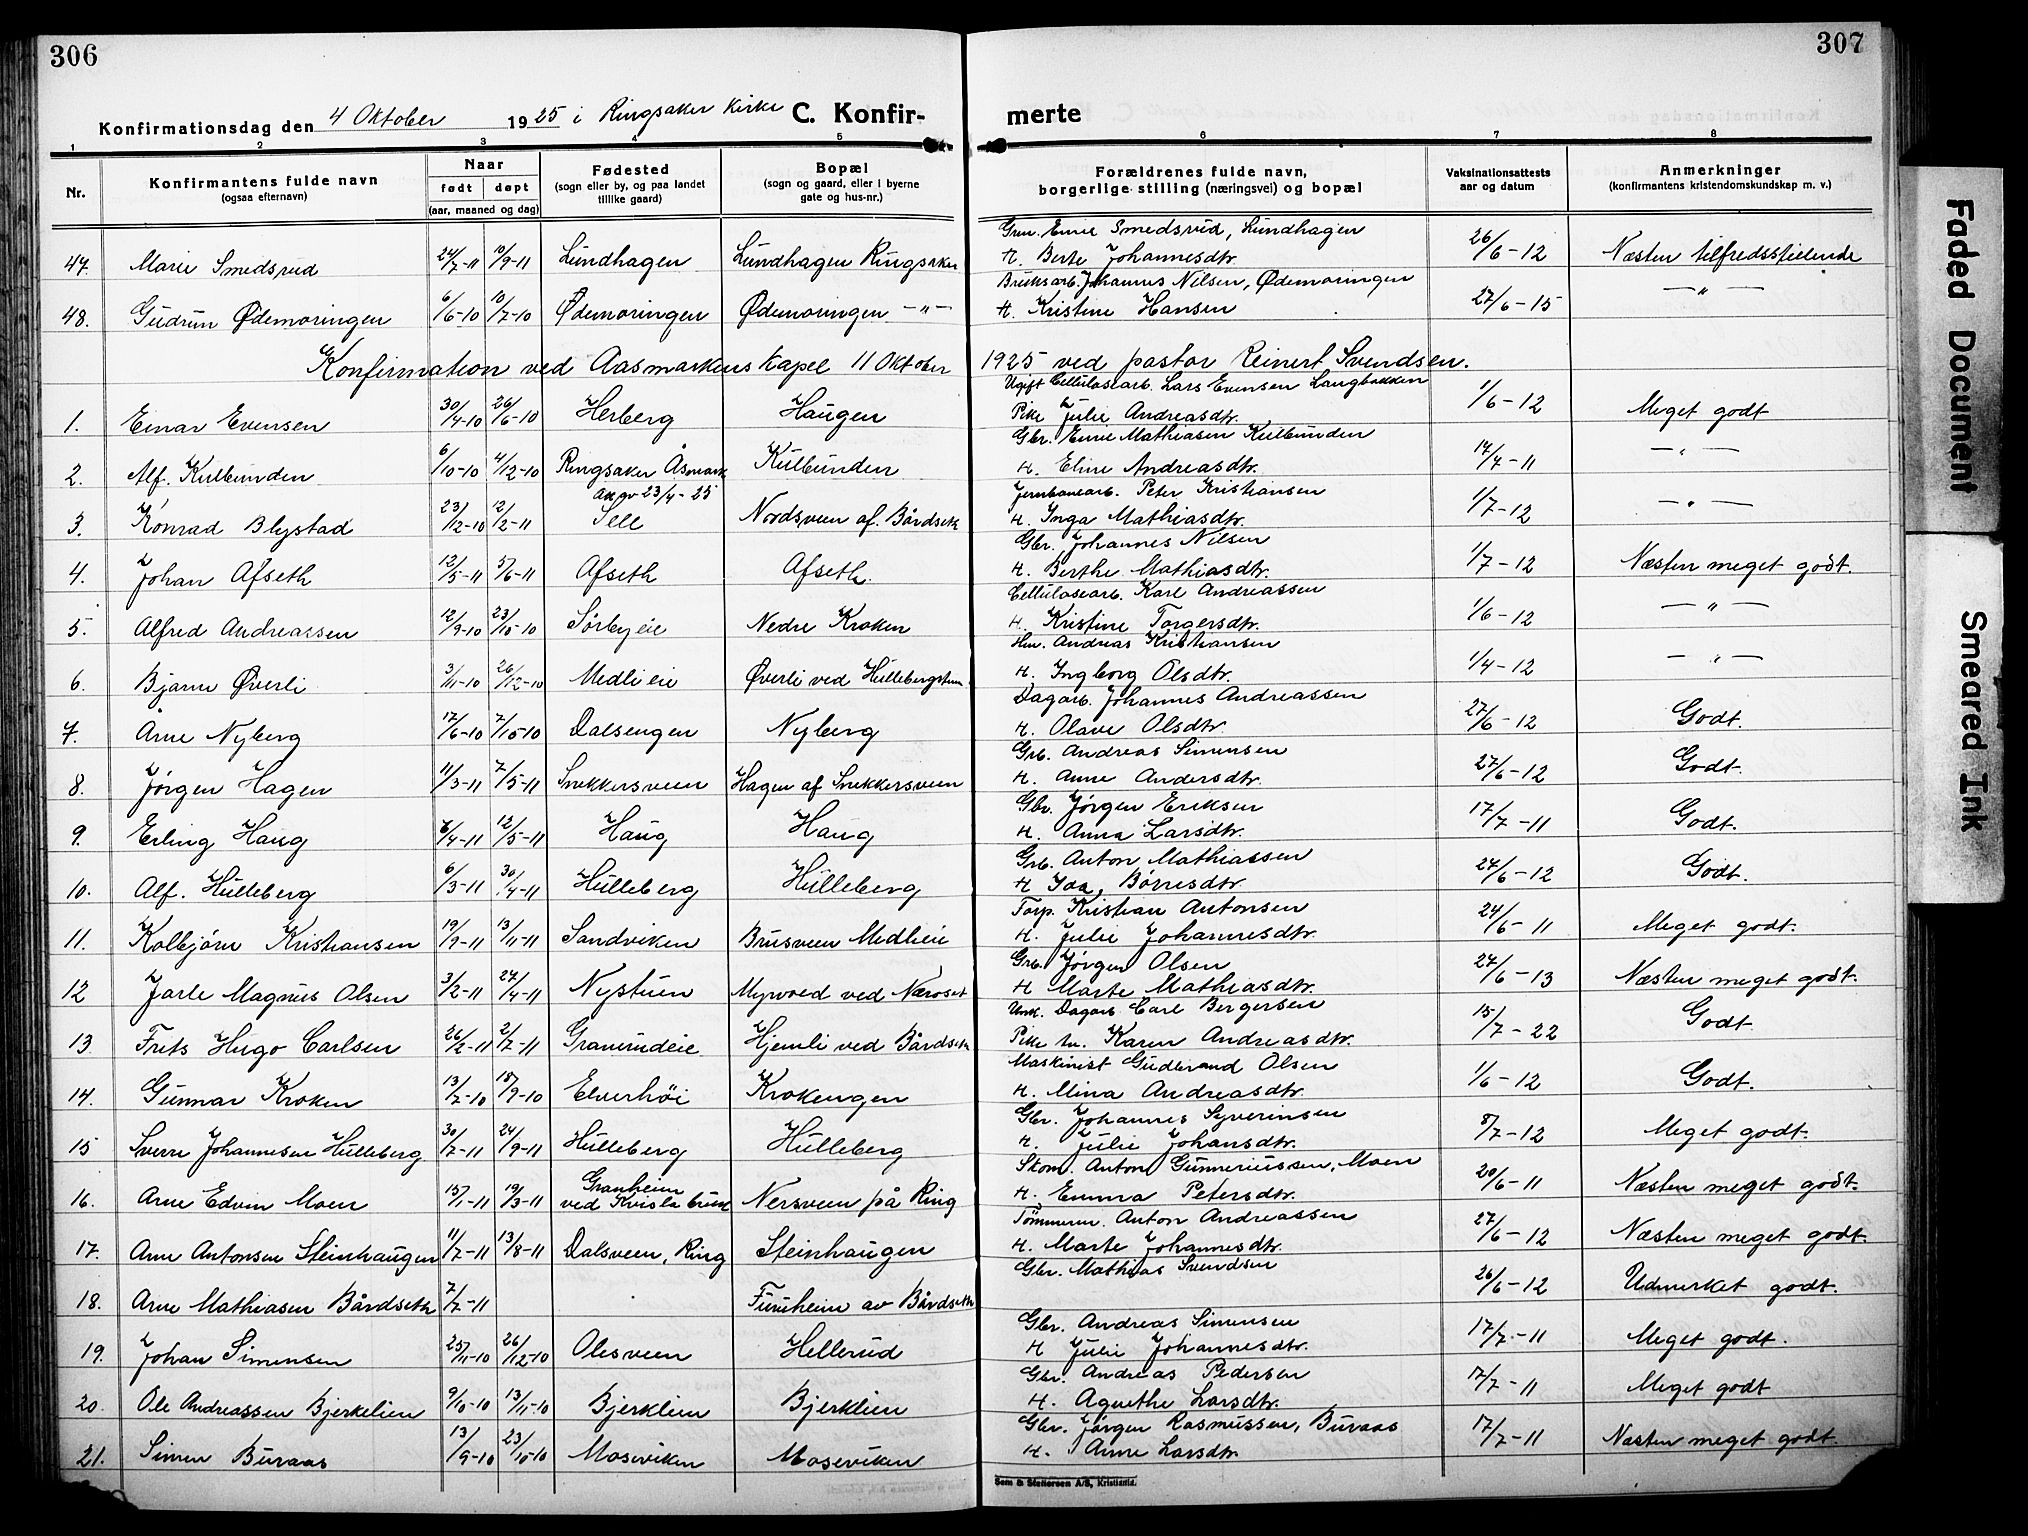 306
307
Konfirmationsdag den 4 Oktober 1925 i Ringsaker Kirke C. Konfir- merte
1 2 3 4 5 6 7 8
Nr. Konfirmantens fulde navn (ogsaa efternavn) Naar født døpt (aar, maaned og dag) Fødested (sogn eller by, og paa landet tillike gaard) Bopæl (sogn og gaard, eller i byerne gate og hus-nr.) Forældrenes fulde navn, borgerlige stilling (næringsvei) og bopæl Vaksinationsattests aar og datum Anmerkninger (konfirmantens kristendomskundskap m. v.)
Grm. Emie Smedsrud, Lundhagen
47. Marie Smedsrud 24/7-11 10/9-11 Lundhagen Lundhagen Ringsaker H. Berte Johannesdtr. 26/6-12 Næsten tilfredsstielende
Bruksarb. Johannes Nilsen, Ødemoringen
48. Gudrun Ødemoringen 6/6-10 10/7-10 Ødemoringen Ødemoringen -"- H. Kristine Hansen 27/6-15 -"-
Konfirmation ved Aasmarkens kapel 11 Oktober 1925 ved pastor Reinert Svendsen.
Ugift Cellulosearb. Lars Evensen Langbakken
1. Einar Evensen 30/4-10 26/6-10 Herberg Haugen Pike Julie Andreasdtr. 1/6-12 Meget godt
Gbr. Emie Mathiasen Kulbunden
2. Alf. Kulbunden 6/10-10 4/12-10 Ringsaker Åsmark Kulbunden H. Eline Andreasdtr. 14/4-11 -"-
23/4-25 Jernbanearb. Peter Kristiansen
3. Konrad Blystad 23/12-10 12/2-11 Sell Nordsveen af. Bårdseth H. Inga Mathiasdtr. 1/7-12 -"-
Gbr. Johannes Nilsen
4. Johan Afseth 12/5-11 5/6-11 Afseth Afseth. H. Berthe Mathiasdtr. 1/7-12 Næsten meget godt.
Cellulosearb. Karl Andreassen
5. Alfred Andreassen 12/9-10 23/10-10 Sørbyeie Nedre Kroken H. Kristine Torgersdtr. 1/6-12 -"-
Hm. Andreas Kristiansen
6. Bjarne Øverli 3/11-10 26/12-10 Medlieie Øverli ved Hullebergstuen H. Ingborg Olsdtr. 1/4-12 -"-
Dagarb. Johannes Andreassen
7. Arne Nyberg 17/6-10 7/10-10 Dalsengen Nyberg H. Olave Olsdtr. 27/6-12 Godt.
Grb. Andreas Simensen
8. Jørgen Hagen 11/3-11 7/5-11 Snekkersveen Hagen af Snekkersveen H. Anne Andersdtr. 27/6-12 Godt.
Gbr. Jørgen Eriksen
9. Erling Haug 6/4-11 12/5-11 Haug Haug H. Anna Larsdtr. 17/7-11 Godt.
Grb. Anton Mathiassen
10. Alf. Hulleberg 6/3-11 30/4-11 Hulleberg Hulleberg H Ida, Børresdtr. 27/6-12 Godt.
Torp. Kristian Antonsen
11. Kolbjørn Kristiansen 19/9-11 13/11-11 Sandviken Brusveen Medlieie H. Julie Johannesdtr. 24/6-11 Meget godt.
Grb. Jørgen Olsen
12 Jarle Magnus Olsen 3/2-11 27/4-11 Nystuen Myrvold ved Næroset H Marte Mathiasdtr. 27/6-13 Næsten meget godt.
Unk. Dagarb. Carl Bergersen
13. Frits Hugo Carlsen 26/2-11 2/7-11 Gravundeie Hjemli ved Bårdseth Pike tn. Karen Andreasdtr. 15/7-22 Godt
Maskinist Gudbrand Olsen
14. Gunnar Kroken 13/7-10 18/9-10 Elverhöi Krokengen H. Mina Andreasdtr. 1/6-12 Godt.
Gbr. Johannes Syverinsen
15 Sverre Johannesen Hulleberg 30/7-11 24/9-11 Hulleberg Hulleberg H. Julie Johansdtr. 8/7-12 Meget godt.
Granheim Skom. Anton Gunneriussen, Moen
16. Arne Edvin Moen 15/1-11 19/3-11 ved Kvisla bruk Nersveen på Ring H. Emma Petersdtr. 20/6-11 Næsten meget godt.
Tømmerm. Anton Andreassen
17. Arne Antonsen Steinhaugen 11/7-11 13/8-11 Dalsveen, Ring Steinhaugen H. Marte Johannesdtr. 27/6-12 Næsten meget godt.
Gbr. Mathias Svendsen
18. Arne Mathiasen Bårdseth 7/7-11 Furuheim av Bårdseth 26/6-12 Udmerket godt.
Gbr. Andreas Simensen
19. Johan Simensen 25/11-10 26/12-10 Olesveen Hellerud H Julie Johannesdtr. 17/7-11 Meget godt.
Gbr. Andreas Pedersen
20. Ole Andreassen Bjerkelien 9/10-10 13/11-10 Bjerklien Bjerklien H. Agnethe Larsdtr. 17/7-11 Meget godt
Gbr. Jørgen Rasmussen, Buraas
21. Simen Buraas 13/9-10 23/10-10 Moseviken Moseviken H. Anne Larsdtr. 17/7-11 Næsten meget godt.
Sem & Stenersen A/S, Kristiania.
Faded Document
Smeared Ink